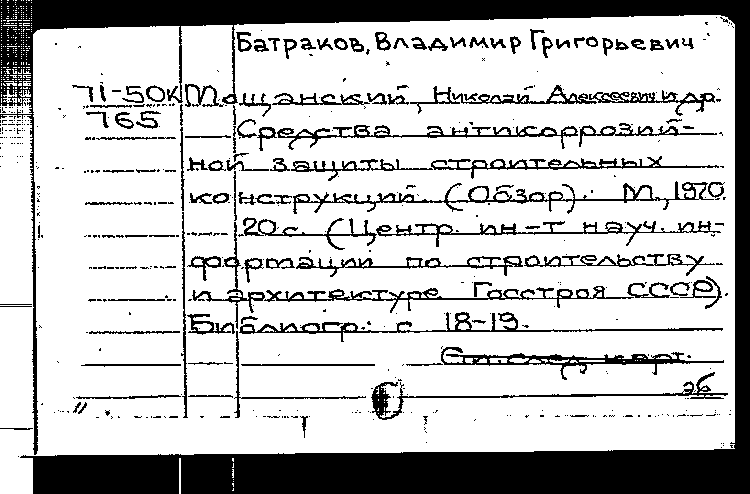 Батраков, Владимир Григорьевич
71-50К Мощанский, Николай Алексеевич и др.
765 Средства антикоррозий-
ной защиты строительных
конструкций. (Обзор). М., 1970.
20 с. (Центр. ин-т науч. ин-
формации по строительству
и архитектуре Госстроя СССР).
Библиогр.: с. 18-19.
См. след. карт.
эб